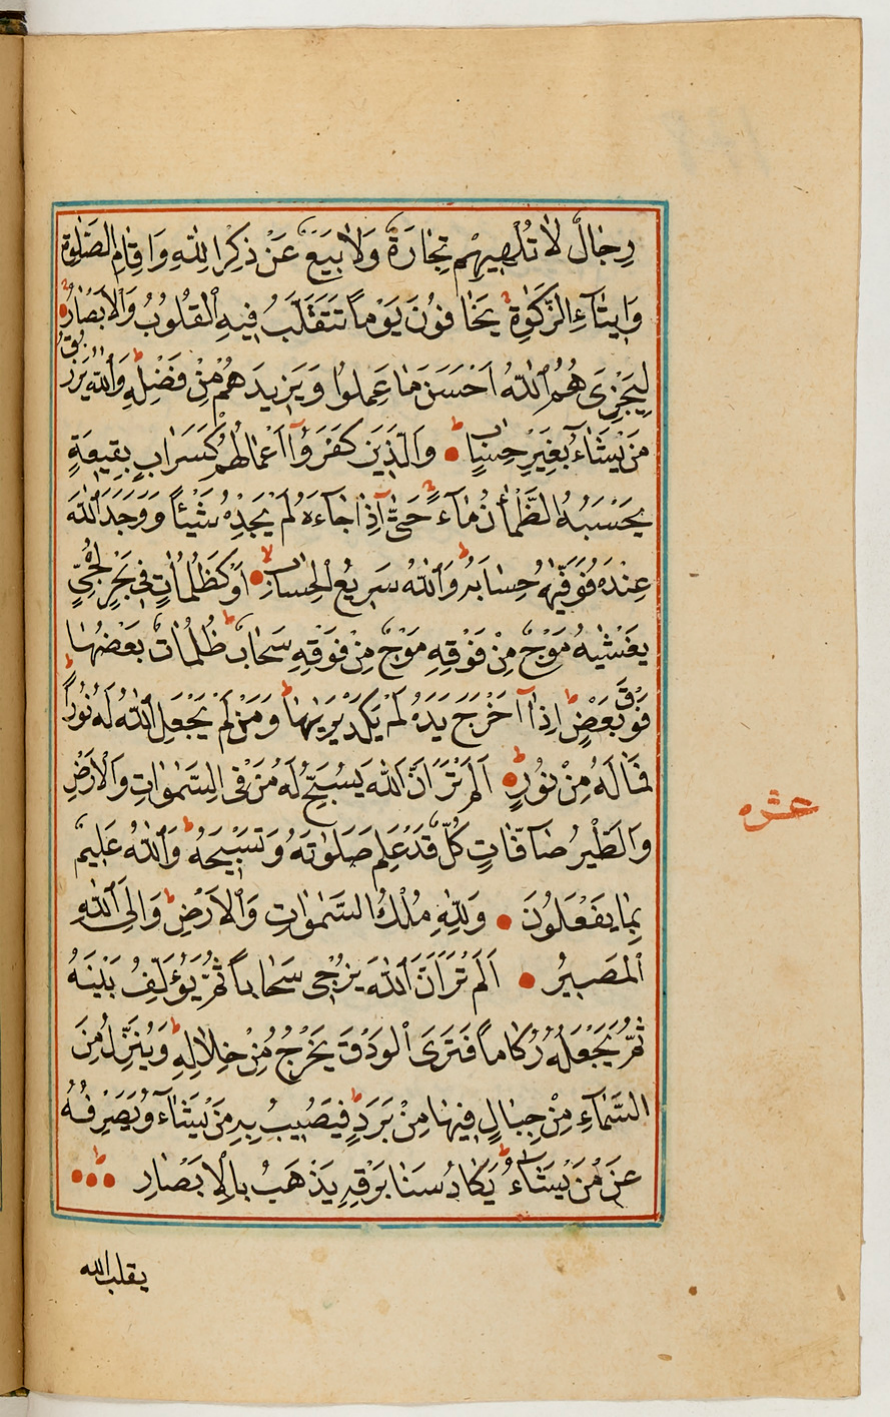 رِجَالٌ لَا تُلْهِيهِمْ تِجَارَةٌ وَلَا بَيْعٌ عَنْ ذِكْرِ اللّٰهِ وَاِقَامِ الصَّلٰوةِ
وَاِيتَآءِ الزَّكٰوةِ يَخَافُونَ يَوْمًا تَتَقَلَّبُ فِيهِ الْقُلُوبُ وَالْاَبْصَارُ
لِيَجْزِيَهُمُ اللّٰهُ اَحْسَنَ مَا عَمِلُوا وَيَزِيدَهُمْ مِنْ فَضْلِهِ وَاللّٰهُ يَرْزُقُ
مَنْ يَشَآءُ بِغَيْرِ حِسَابٍ وَالَّذِينَ كَفَرُوٓا اَعْمَالُهُمْ كَسَرَابٍ بِقِيعَةٍ
يَحْسَبُهُ الظَّمْاٰنُ مَآءً حَتّٰٓى اِذَا جَآءَهُ لَمْ يَجِدْهُ شَيْئًا وَوَجَدَ اللّٰهَ
عِنْدَهُ فَوَفّٰيهُ حِسَابَهُ وَاللّٰهُ سَرِيعُ الْحِسَابِ اَوْ كَظُلُمَاتٍ فِى بَحْرٍ لُجِّىٍّ
يَغْشٰيهُ مَوْجٌ مِنْ فَوْقِهِ مَوْجٌ مِنْ فَوْقِهِ سَحَابٌ ظُلُمَاتٌ بَعْضُهَا
فَوْقَ بَعْضٍ اِذَآ اَخْرَجَ يَدَهُ لَمْ يَكَدْ يَرٰيهَا وَمَنْ لَمْ يَجْعَلِ اللّٰهُ لَهُ نُورًا
فَمَا لَهُ مِنْ نُورٍ اَلَمْ تَرَ اَنَّ اللّٰهَ يُسَبِّحُ لَهُ مَنْ فِى السَّمٰوَاتِ وَالْاَرْضِ
وَالطَّيْرُ صَآفَّاتٍ كُلٌّ قَدْ عَلِمَ صَلَوٰتَهُ وَتَسْبِيحَهُ وَاللّٰهُ عَلِيمٌ
بِمَا يَفْعَلُونَ وَلِلّٰهِ مُلْكُ السَّمٰوَاتِ وَالْاَرْضِ وَاِلَى اللّٰهِ
الْمَصِيرُ اَلَمْ تَرَ اَنَّ اللّٰهَ يُزْجِى سَحَابًا ثُمَّ يُؤَلِّفُ بَيْنَهُ
ثُمَّ يَجْعَلُهُ رُكَامًا فَتَرَى الْوَدْقَ يَخْرُجُ مِنْ خِلَالِهِ وَيُنَزِّلُ مِنَ
السَّمَآءِ مِنْ جِبَالٍ فِيهَا مِنْ بَرَدٍ فَيُصِيبُ بِهِ مَنْ يَشَآءُ وَيَصْرِفُهُ
عَنْ مَنْ يَشَآءُ يَكَادُ سَنَا بَرْقِهِ يَذْهَبُ بِالْاَبْصَارِ
عشره
يقلب الله